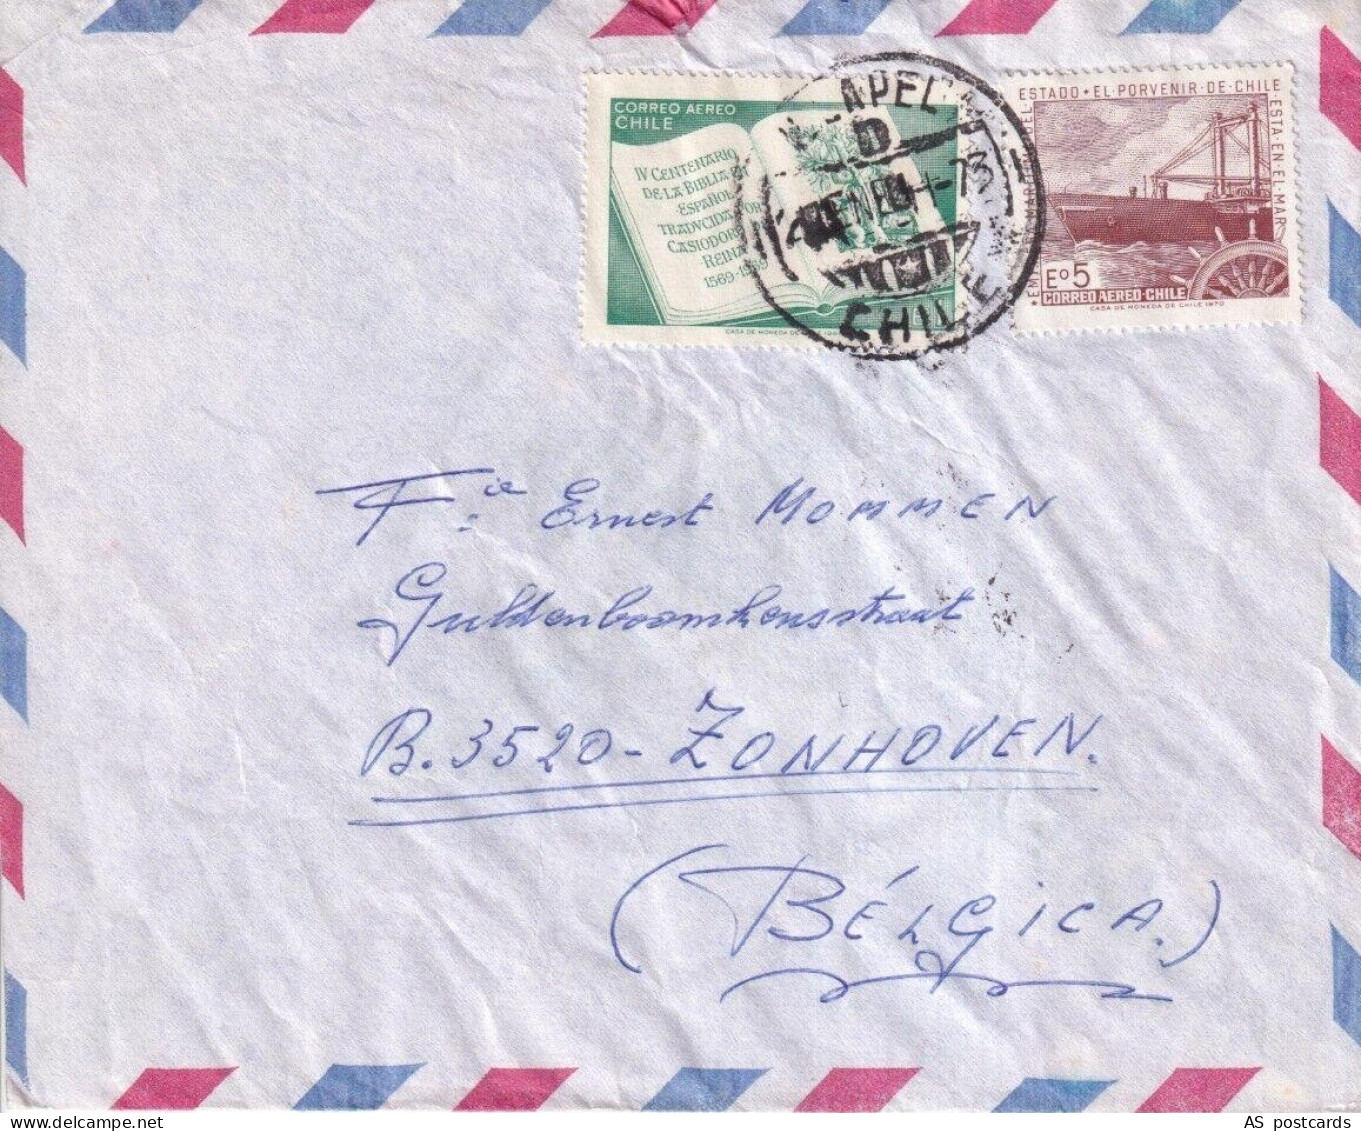 CORREO AEREO
CHILE
IV CENTENARIO
DE LA BIBLIA EN
ESPAÑOL
TRADVCIDA POR
CASIODORO
REINA
1569-1969
CASA DE MONEDA DE
ESTADO • EL PORVENIR DE CHILE
ESTA EN EL MAR
Eº 5
CORREO AEREO-CHILE
CASA DE MONEDA DE CHILE 1970
ENE
73
CHILE
F.ie Ernest MOMMEN
Guldenboomkensstraat
B.3520-ZONHOVEN.
(BÉLGICA.)
AS postcards